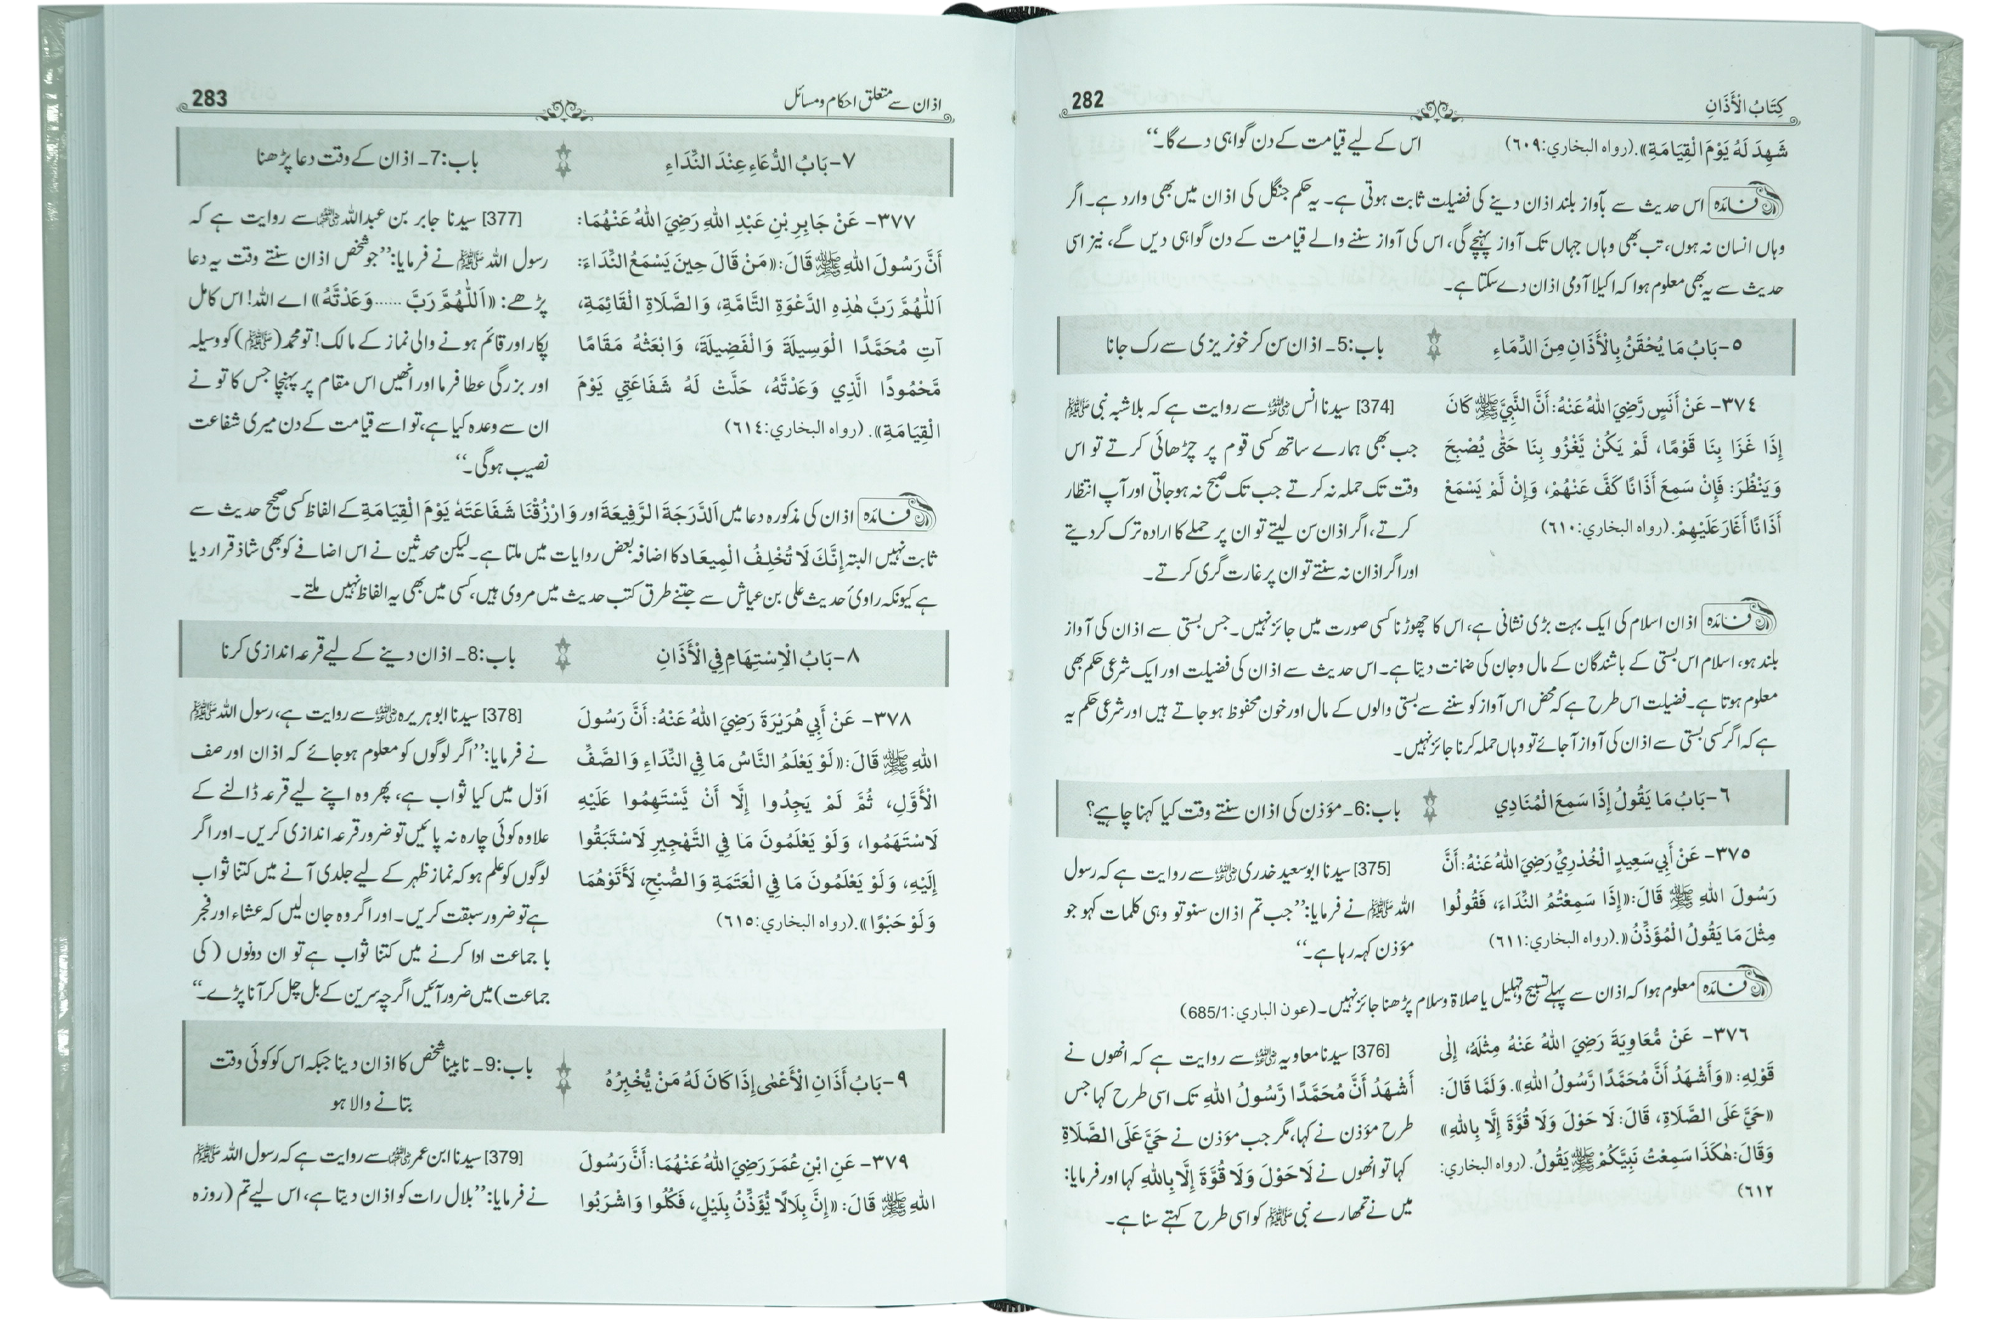 كِتَابُ الْأَذَانِ
282
شَهِدَ لَهُ يَوْمَ الْقِيَامَةِ». (رواه البخاري:٦٠٩)
اس کے لیے قیامت کے دن گواہی دے گا۔‘‘
فائدہ اس حدیث سے بآواز بلند اذان دینے کی فضیلت ثابت ہوتی ہے۔ یہ حکم جنگل کی اذان میں بھی وارد ہے۔ اگر
وہاں انسان نہ ہوں، تب بھی وہاں جہاں تک آواز پہنچے گی، اس کی آواز سننے والے قیامت کے دن گواہی دیں گے، نیز اسی
حدیث سے یہ بھی معلوم ہوا کہ اکیلا آدمی اذان دے سکتا ہے۔
٥- بَابُ مَا يُحْقَنُ بِالْأَذَانِ مِنَ الدِّمَاءِ
باب:5۔ اذان سن کر خونریزی سے رک جانا
٣٧٤- عَنْ أَنَسٍ رَّضِيَ اللهُ عَنْهُ: أَنَّ النَّبِيَّ ﷺ كَانَ
إِذَا غَزَا بِنَا قَوْمًا، لَمْ يَكُنْ يَّغْزُو بِنَا حَتَّى يُصْبِحَ
وَيَنْظُرَ: فَإِنْ سَمِعَ أَذَانًا كَفَّ عَنْهُمْ، وَإِنْ لَّمْ يَسْمَعْ
أَذَانًا أَغَارَ عَلَيْهِمْ. (رواه البخاري:٦١٠)
[374] سیدنا انس رضی اللہ عنہ سے روایت ہے کہ بلاشبہ نبی ﷺ
جب بھی ہمارے ساتھ کسی قوم پر چڑھائی کرتے تو اس
وقت تک حملہ نہ کرتے جب تک صبح نہ ہوجاتی اور آپ انتظار
کرتے، اگر اذان سن لیتے تو ان پر حملے کا ارادہ ترک کردیتے
اور اگر اذان نہ سنتے تو ان پر غارت گری کرتے۔
فائدہ اذان اسلام کی ایک بہت بڑی نشانی ہے، اس کا چھوڑنا کسی صورت میں جائز نہیں۔ جس بستی سے اذان کی آواز
بلند ہو، اسلام اس بستی کے باشندگان کے مال وجان کی ضمانت دیتا ہے۔ اس حدیث سے اذان کی فضیلت اور ایک شرعی حکم بھی
معلوم ہوتا ہے۔ فضیلت اس طرح ہے کہ محض اس آواز کو سننے سے بستی والوں کے مال اور خون محفوظ ہوجاتے ہیں اور شرعی حکم یہ
ہے کہ اگر کسی بستی سے اذان کی آواز آجائے تو وہاں حملہ کرنا جائز نہیں۔
٦- بَابُ مَا يَقُولُ إِذَا سَمِعَ الْمُنَادِي
باب:6۔ مؤذن کی اذان سنتے وقت کیا کہنا چاہیے؟
٣٧٥- عَنْ أَبِي سَعِيدٍ الْخُدْرِيِّ رَضِيَ اللهُ عَنْهُ: أَنَّ
رَسُولَ اللهِ ﷺ قَالَ: «إِذَا سَمِعْتُمُ النِّدَاءَ، فَقُولُوا
مِثْلَ مَا يَقُولُ الْمُؤَذِّنُ». (رواه البخاري:٦١١)
[375] سیدنا ابوسعید خدری رضی اللہ عنہ سے روایت ہے کہ رسول
اللہ ﷺ نے فرمایا: ’’جب تم اذان سنو تو وہی کلمات کہو جو
مؤذن کہہ رہا ہے۔‘‘
فائدہ معلوم ہوا کہ اذان سے پہلے تسبیح وتہلیل یا صلاۃ وسلام پڑھنا جائز نہیں۔ (عون الباري:685/1)
٣٧٦- عَنْ مُّعَاوِيَةَ رَضِيَ اللهُ عَنْهُ مِثْلَهُ، إِلَى
قَوْلِهِ: «وَأَشْهَدُ أَنَّ مُحَمَّدًا رَّسُولُ اللهِ». وَلَمَّا قَالَ:
«حَيَّ عَلَى الصَّلَاةِ، قَالَ: لَا حَوْلَ وَلَا قُوَّةَ إِلَّا بِاللهِ»
وَقَالَ: هٰكَذَا سَمِعْتُ نَبِيَّكُمْ ﷺ يَقُولُ. (رواه البخاري:
٦١٢)
[376] سیدنا معاویہ رضی اللہ عنہ سے روایت ہے کہ انھوں نے
أَشْهَدُ أَنَّ مُحَمَّدًا رَّسُولُ اللهِ تک اسی طرح کہا جس
طرح مؤذن نے کہا، مگر جب مؤذن نے حَيَّ عَلَى الصَّلَاةِ
کہا تو انھوں نے لَا حَوْلَ وَلَا قُوَّةَ إِلَّا بِاللهِ کہا اور فرمایا:
میں نے تمھارے نبی ﷺ کو اسی طرح کہتے سنا ہے۔
اذان سے متعلق احکام ومسائل
283
٧- بَابُ الدُّعَاءِ عِنْدَ النِّدَاءِ
باب:7۔ اذان کے وقت دعا پڑھنا
٣٧٧- عَنْ جَابِرِ بْنِ عَبْدِ اللهِ رَضِيَ اللهُ عَنْهُمَا:
أَنَّ رَسُولَ اللهِ ﷺ قَالَ: «مَنْ قَالَ حِينَ يَسْمَعُ النِّدَاءَ:
اَللّٰهُمَّ رَبَّ هٰذِهِ الدَّعْوَةِ التَّامَّةِ، وَالصَّلَاةِ الْقَائِمَةِ،
آتِ مُحَمَّدًا الْوَسِيلَةَ وَالْفَضِيلَةَ، وَابْعَثْهُ مَقَامًا
مَّحْمُودًا الَّذِي وَعَدْتَّهُ، حَلَّتْ لَهُ شَفَاعَتِي يَوْمَ
الْقِيَامَةِ». (رواه البخاري:٦١٤)
[377] سیدنا جابر بن عبداللہ رضی اللہ عنہما سے روایت ہے کہ
رسول اللہ ﷺ نے فرمایا: ’’جو شخص اذان سنتے وقت یہ دعا
پڑھے: «اَللّٰهُمَّ رَبَّ ...... وَعَدْتَّهُ» اے اللہ! اس کامل
پکار اور قائم ہونے والی نماز کے مالک! تو محمد (ﷺ) کو وسیلہ
اور بزرگی عطا فرما اور انھیں اس مقام پر پہنچا جس کا تو نے
ان سے وعدہ کیا ہے، تو اسے قیامت کے دن میری شفاعت
نصیب ہوگی۔‘‘
فائدہ اذان کی مذکورہ دعا میں اَلدَّرَجَةَ الرَّفِيعَةَ اور وَارْزُقْنَا شَفَاعَتَهُ يَوْمَ الْقِيَامَةِ کے الفاظ کسی صحیح حدیث سے
ثابت نہیں البتہ إِنَّكَ لَا تُخْلِفُ الْمِيعَادَ کا اضافہ بعض روایات میں ملتا ہے۔ لیکن محدثین نے اس اضافے کو بھی شاذ قرار دیا
ہے کیونکہ راویٔ حدیث علی بن عیاش سے جتنے طرق کتب حدیث میں مروی ہیں، کسی میں بھی یہ الفاظ نہیں ملتے۔
٨- بَابُ الْاِسْتِهَامِ فِي الْأَذَانِ
باب:8۔ اذان دینے کے لیے قرعہ اندازی کرنا
٣٧٨- عَنْ أَبِي هُرَيْرَةَ رَضِيَ اللهُ عَنْهُ: أَنَّ رَسُولَ
اللهِ ﷺ قَالَ: «لَوْ يَعْلَمُ النَّاسُ مَا فِي النِّدَاءِ وَالصَّفِّ
الْأَوَّلِ، ثُمَّ لَمْ يَجِدُوا إِلَّا أَنْ يَّسْتَهِمُوا عَلَيْهِ
لَاسْتَهَمُوا، وَلَوْ يَعْلَمُونَ مَا فِي التَّهْجِيرِ لَاسْتَبَقُوا
إِلَيْهِ، وَلَوْ يَعْلَمُونَ مَا فِي الْعَتَمَةِ وَالصُّبْحِ، لَأَتَوْهُمَا
وَلَوْ حَبْوًا». (رواه البخاري:٦١٥)
[378] سیدنا ابوہریرہ رضی اللہ عنہ سے روایت ہے، رسول اللہ ﷺ
نے فرمایا: ’’اگر لوگوں کو معلوم ہوجائے کہ اذان اور صف
اوّل میں کیا ثواب ہے، پھر وہ اپنے لیے قرعہ ڈالنے کے
علاوہ کوئی چارہ نہ پائیں تو ضرور قرعہ اندازی کریں۔ اور اگر
لوگوں کو علم ہو کہ نماز ظہر کے لیے جلدی آنے میں کتنا ثواب
ہے تو ضرور سبقت کریں۔ اور اگر وہ جان لیں کہ عشاء اور فجر
با جماعت ادا کرنے میں کتنا ثواب ہے تو ان دونوں (کی
جماعت) میں ضرور آئیں اگرچہ سرین کے بل چل کر آنا پڑے۔‘‘
٩- بَابُ أَذَانِ الْأَعْمٰى إِذَا كَانَ لَهُ مَنْ يُّخْبِرُهُ
باب:9۔ نابینا شخص کا اذان دینا جبکہ اس کو کوئی وقت
بتانے والا ہو
٣٧٩- عَنِ ابْنِ عُمَرَ رَضِيَ اللهُ عَنْهُمَا: أَنَّ رَسُولَ
اللهِ ﷺ قَالَ: «إِنَّ بِلَالًا يُّؤَذِّنُ بِلَيْلٍ، فَكُلُوا وَاشْرَبُوا
[379] سیدنا ابن عمر رضی اللہ عنہما سے روایت ہے کہ رسول اللہ ﷺ
نے فرمایا: ’’بلال رات کو اذان دیتا ہے، اس لیے تم (روزہ